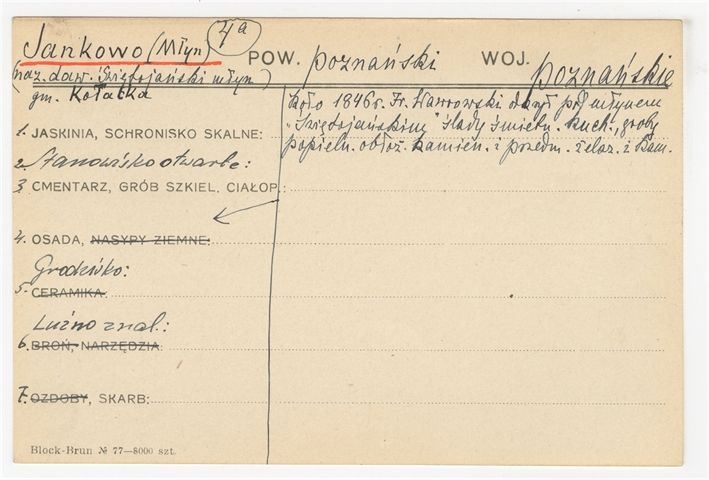 Jankowo (Młyn) 4a POW. poznański WOJ. poznańskie
(naz. daw. Świętojański młyn)
gm. Kołatka
koło 1846 r. Fr. Wawrowski odkrył pod młynem
"Świętojańskim" ślady śmietn. kuch., groby
popieln. obłoż. kamień. i przedm. żelaz. i kam.
1. JASKINIA, SCHRONISKO SKALNE:
2. Stanowisko otwarte:
3. CMENTARZ, GRÓB SZKIEL. CIAŁOP.:
4. OSADA, NASYPY ZIEMNE:
Grodzisko:
5. CERAMIKA:
Luźno znal.:
6. BROŃ, NARZĘDZIA
7. OZDOBY, SKARB:
Block-Brun № 77—8000 szt.